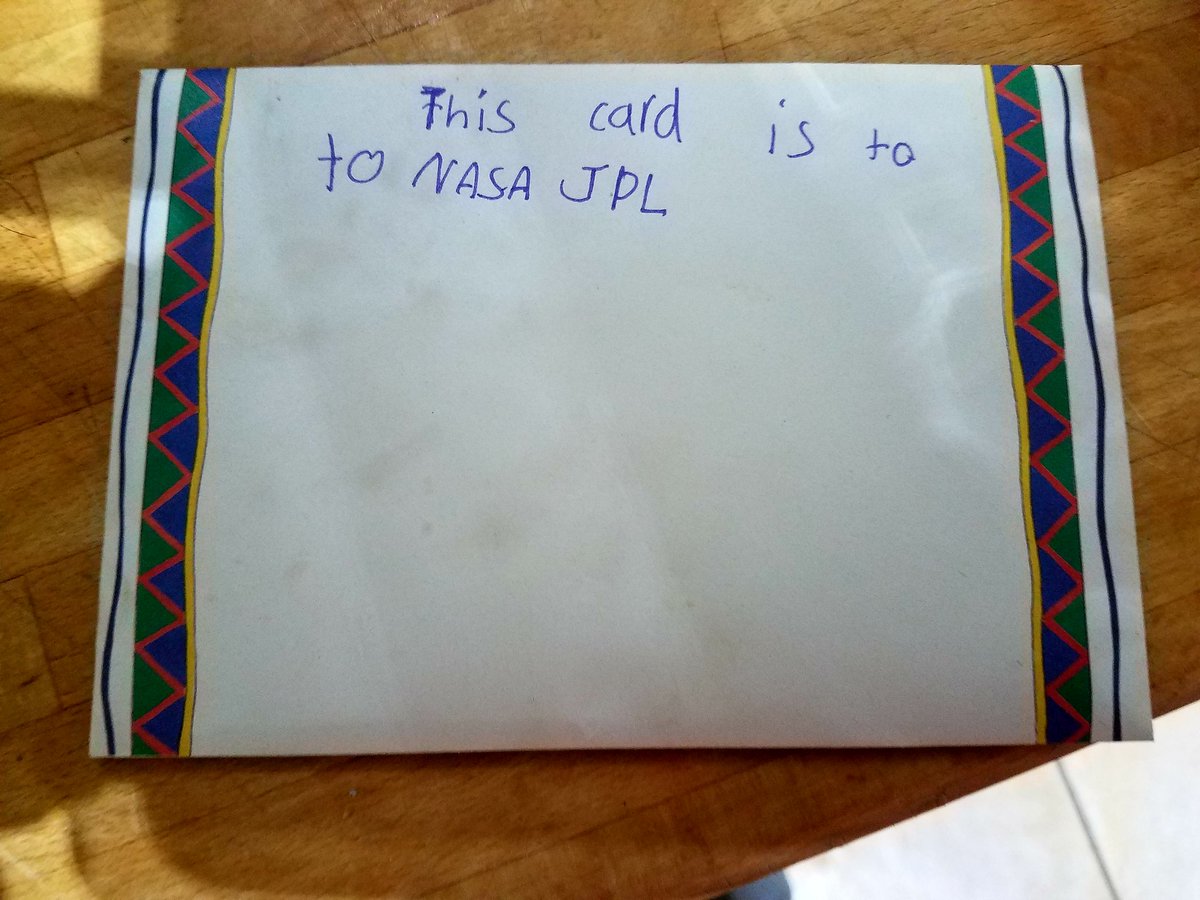 This card is to
to NASA JPL